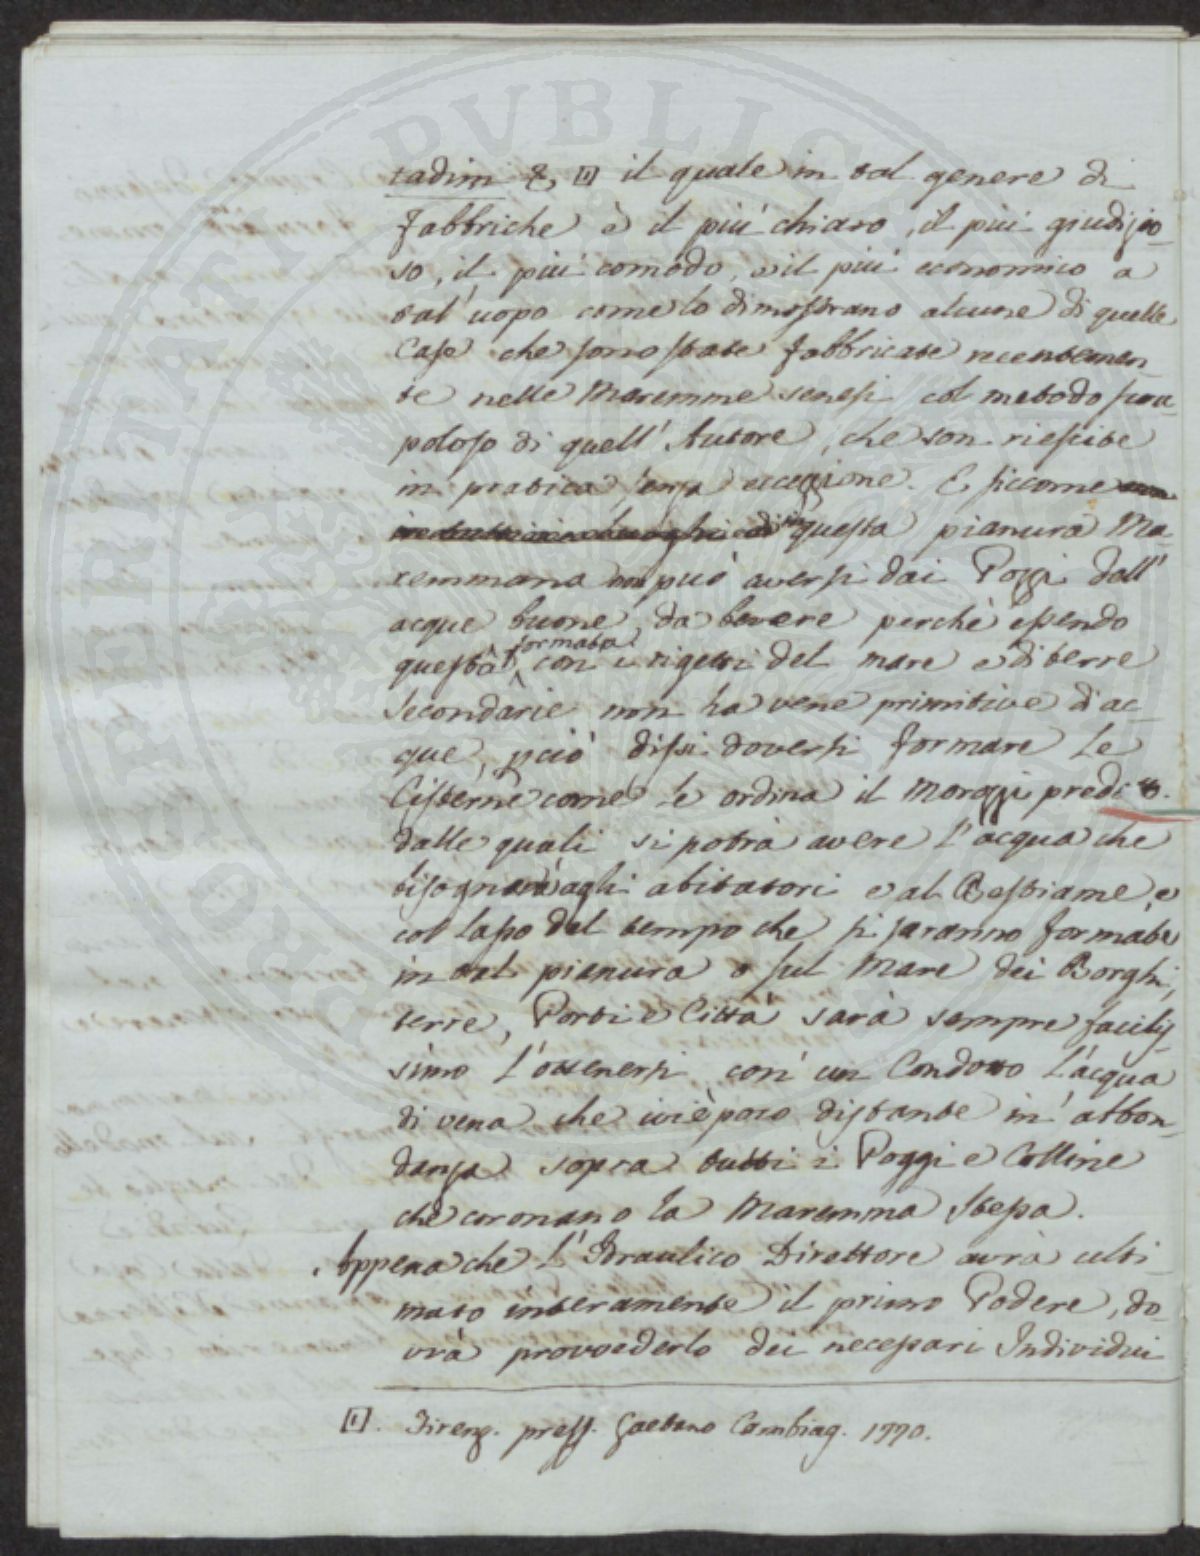 tadini &, [1] il quale in tal genere di
Fabbriche è il più chiaro, il più giudizio-
so, il più comodo, e il più economico a
tal'uopo come lo dimostrano alcune di quelle
Case che sono state fabbricate recentemen-
te nelle Maremme senesi col metodo scru-
poloso di quell'Autore, che son riescite
in pratica senza eccezione. E siccome
in questa pianura Ma-
remmana non può aversi dai Pozzi dell'
acque buone da bevere perchè essendo
questa formata con i rigetti del mare e di terre
secondarie non ha vene primitive d'ac-
que, pciò dissi doversi formare le
Cisterne come le ordina il Morozzi predto.
dalle quali si potrà avere l'acqua che
bisognerà agli abitatori e al Bestiame, e
col lasso del tempo che si saranno formate
in tal pianura o sul Mare dei Borghi,
terre, Porti e Città sarà sempre facilis-
simo l'ottenersi con un Condotto l'acqua
di vena che ivi è poco distante in abbon-
danza sopra tutti i Poggi e Colline
che coronano la Maremma stessa.
Appena che l'Idraulico Direttore avrà ulti-
mato interamente il primo Podere, do-
vrà provvederlo dei necessari Individui
[1]. Firenz. press. Gaetano Cambiag. 1770.
POSPERITATI PVBLICAE